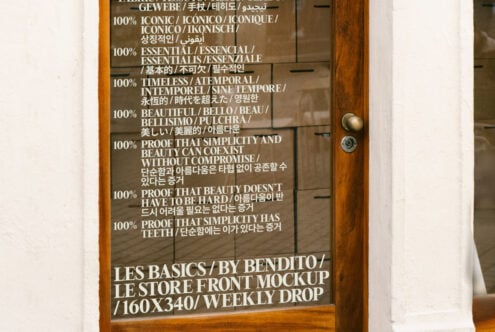 GEWEBE / 手杖 / 테히도 / تيجيدو
100% ICONIC / ICÓNICO / ICONIQUE /
ICONICO / IKONISCH /
상징적인 / أيقوني
100% ESSENTIAL / ESSENCIAL /
ESSENTIALIS / ESSENZIALE
/ 基本的 / 不可欠 / 필수적인
100% TIMELESS / ATEMPORAL /
INTEMPOREL / SINE TEMPORE /
永恆的 / 時代を超えた / 영원한
100% BEAUTIFUL / BELLO / BEAU /
BELLISIMO / PULCHRA /
美しい / 美麗的 / 아름다운
100% PROOF THAT SIMPLICITY AND
BEAUTY CAN COEXIST
WITHOUT COMPROMISE /
단순함과 아름다움은 타협 없이 공존할 수
있다는 증거
100% PROOF THAT BEAUTY DOESN'T
HAVE TO BE HARD / 아름다움이 반
드시 어려울 필요는 없다는 증거
100% PROOF THAT SIMPLICITY HAS
TEETH / 단순함에는 이가 있다는 증거
LES BASICS / BY BENDITO /
LE STORE FRONT MOCKUP
/ 160X340 / WEEKLY DROP